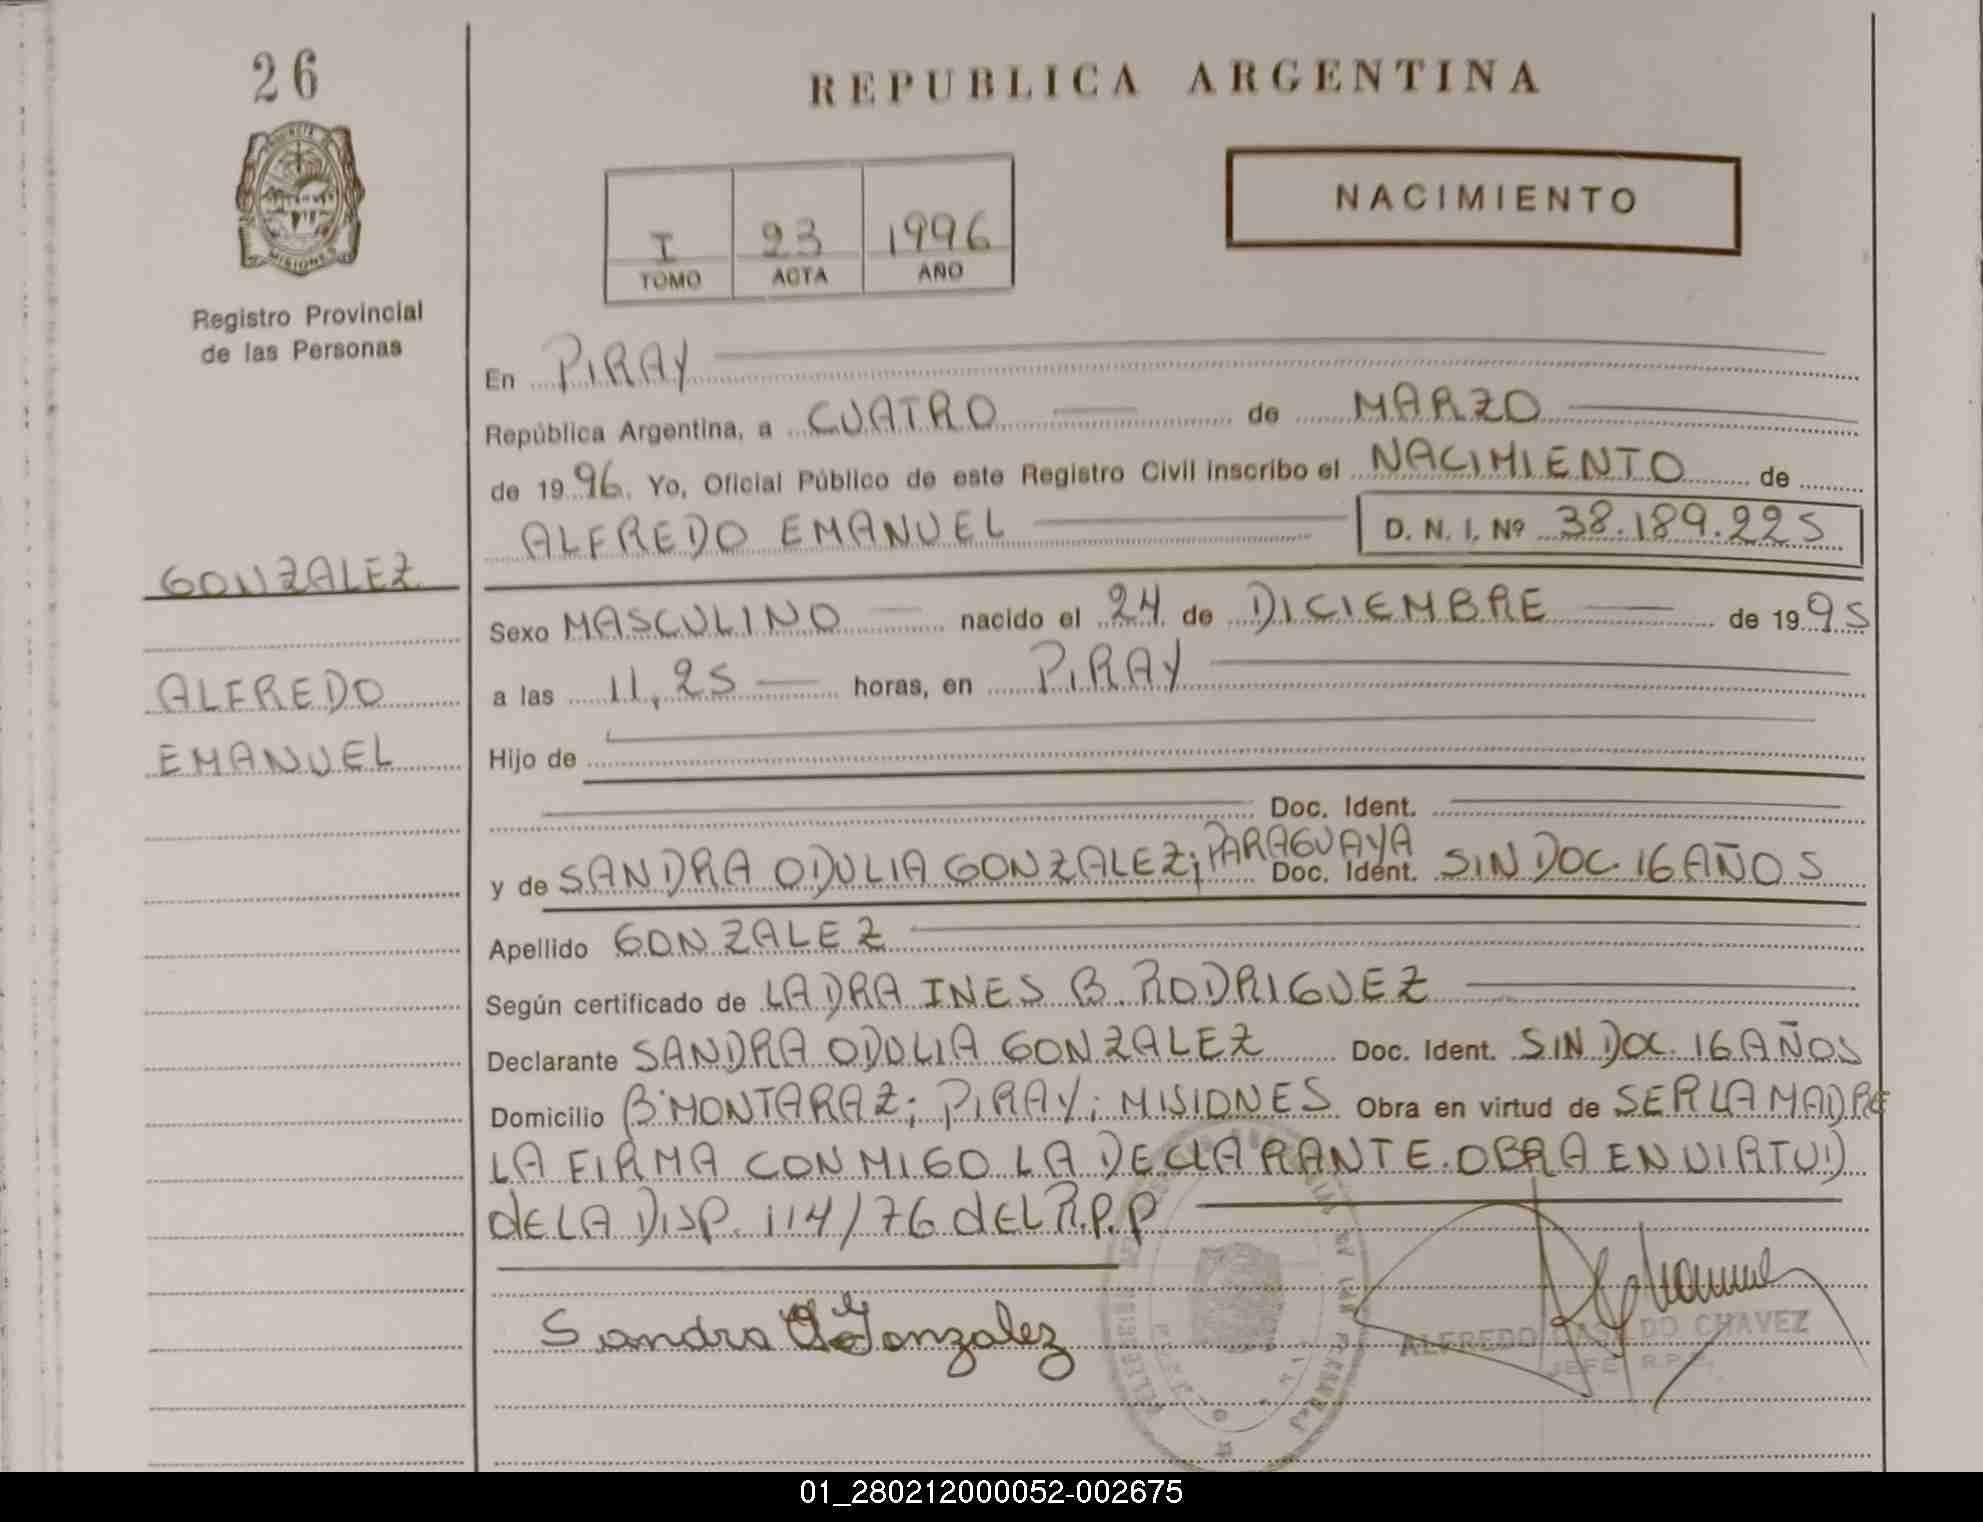 26
REPUBLICA ARGENTINA
NACIMIENTO
I 23 1996
TOMO ACTA AÑO
MISIONES
Registro Provincial
de las Personas
En PIRAY
República Argentina, a CUATRO de MARZO
de 1996. Yo, Oficial Público de este Registro Civil inscribo el NACIMIENTO de
ALFREDO EMANUEL D. N. I. Nº 38.189.225
GONZALEZ
Sexo MASCULINO nacido el 24 de DICIEMBRE de 1995
ALFREDO
a las 11,25 horas, en PIRAY
EMANUEL
Hijo de
Doc. Ident.
y de SANDRA ODULIA GONZALEZ; PARAGUAYA Doc. Ident. SIN DOC. 16 AÑOS
Apellido GONZALEZ
Según certificado de LA DRA INES B. RODRIGUEZ
Declarante SANDRA ODULIA GONZALEZ Doc. Ident. SIN DOC. 16 AÑOS
Domicilio Bº MONTARAZ; PIRAY; MISIONES Obra en virtud de SER LA MADRE
LA FIRMA CONMIGO LA DECLARANTE. OBRA EN VIRTUD
dE LA DISP. 114/76 dEL R.P.P
Sandra O Gonzalez
ALFREDO CASILDO CHAVEZ
JEFE R.P.P.
01_280212000052-002675